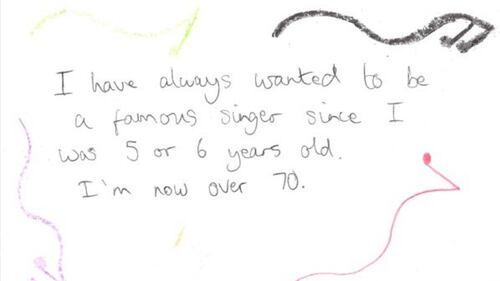 I have always wanted to be
a famous singer since I
was 5 or 6 years old.
I'm now over 70.